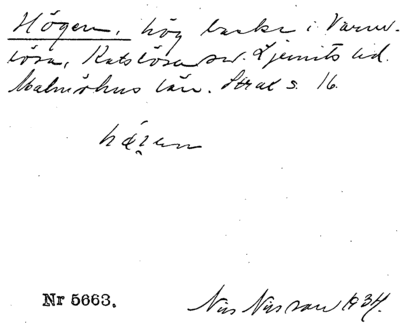 Högen, hög backe i Varm-
lösa, Katslösa sn. Ljunits hd.
Malmöhus län. Strat s. 16.
Nr 5663.
Nils Nilsson 1934.